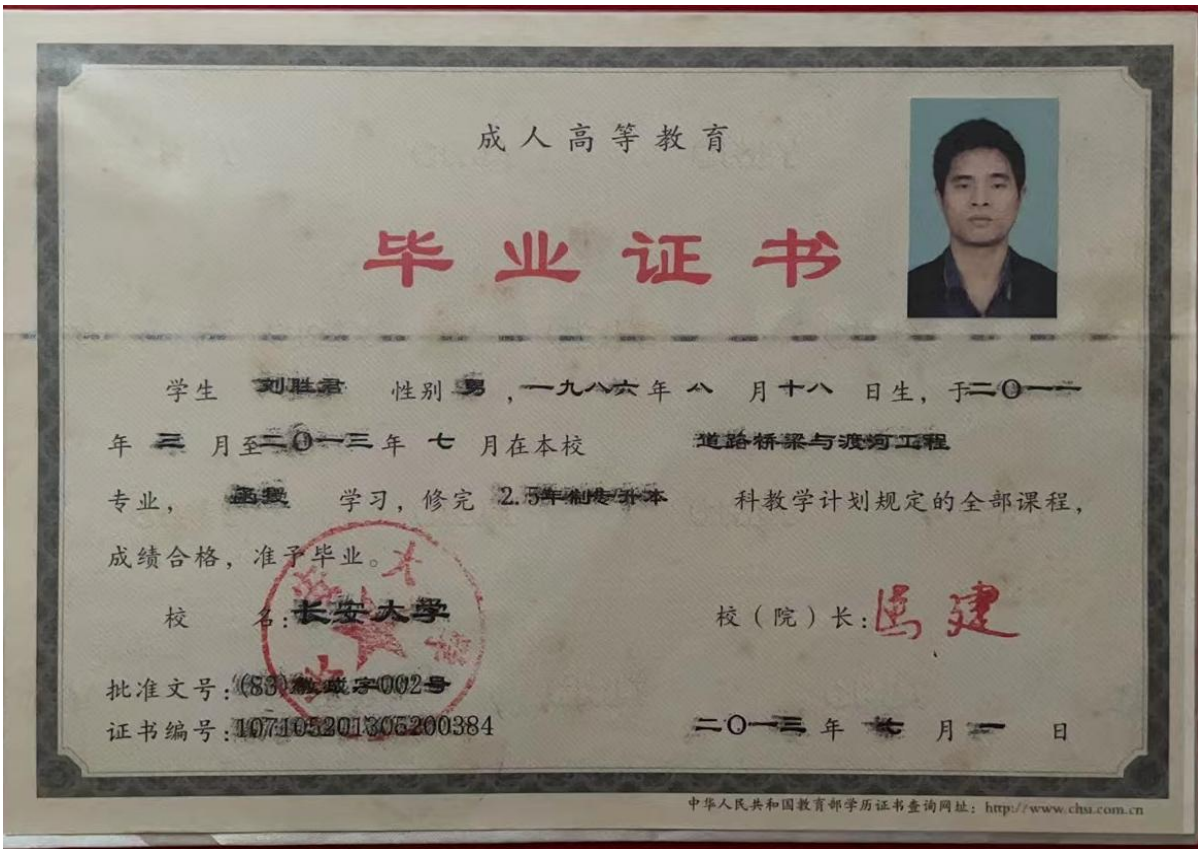 成人高等教育
毕业证书
学生 刘胜君 性别 男，一九八六年 八 月十八 日生，于二〇一一
年 三 月至二〇一三年 七 月在本校 道路桥梁与渡河工程
专业， 函授 学习，修完 2.5年制专升本 科教学计划规定的全部课程，
成绩合格，准予毕业。
校 名：长安大学 校（院）长：
批准文号：(83)教成字002号
证书编号：107105201305200384 二〇一三 年 七 月 一 日
中华人民共和国教育部学历证书查询网址：http://www.chsi.com.cn